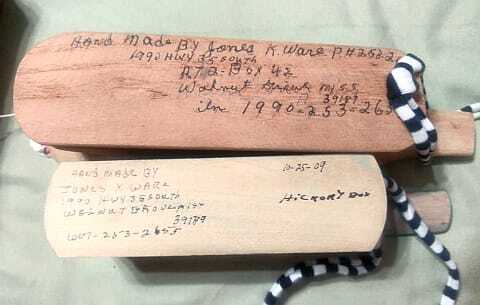 Hand Made By Jones K. Ware P.H 253-2
1990 HWY 35 SOUTH
RT 2 - BOX 42
Walnut Grove Miss
39189
in 1990 - 253 - 265
HAND MADE BY
JONES K WARE
1990 HWY 35 SOUTH
WALNUT GROVE MISS
39189
601-253-2655
10-25-09
HICKORY BOX